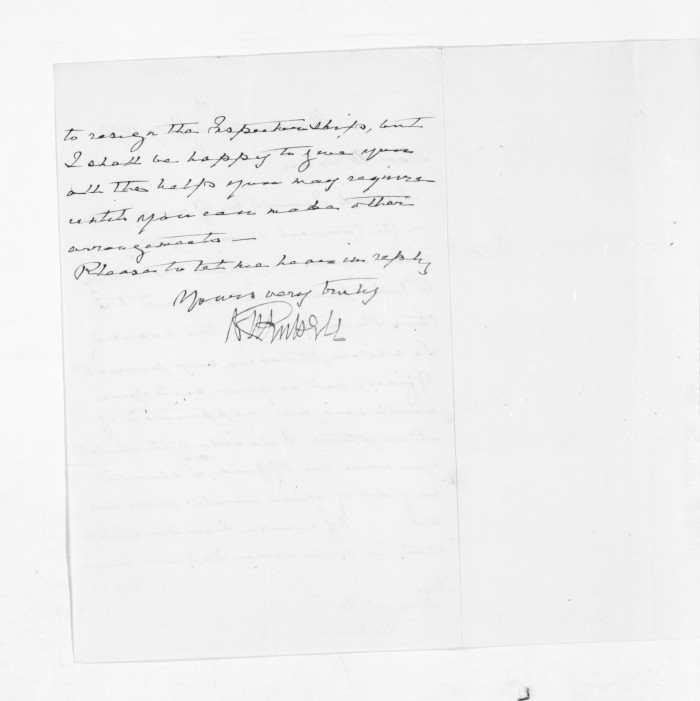 to resign the Inspectorships, but
I shall be happy to give you
all the help you may require
until you can make other
arrangements —
Please to let me hear in reply
Yours very truly